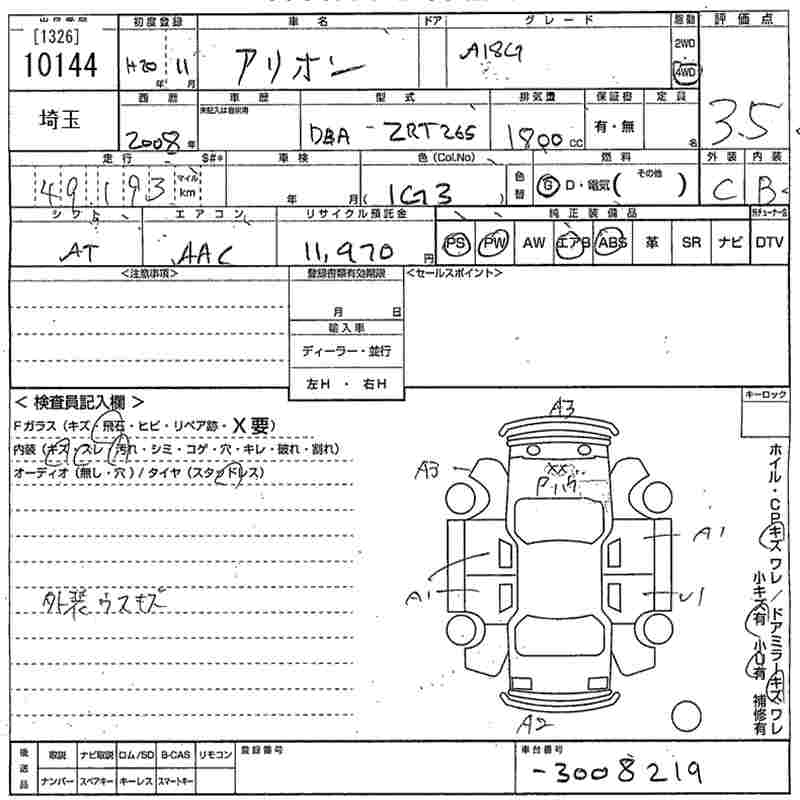 [1326]
10144
初度登録 車名 ドア グレード 駆動 評価点
H20 年 11 月 アリオン A18G 2WD 4WD 3.5
埼玉
西暦 車歴 型式 排気量 保証書 定員
未記入は自家用
2008年 DBA - ZRT265 1800 cc 有・無 名
走行 S#* 車検 色(Col.No) 燃料 外装 内装
49193 マイル km 年 月 ( 1G3 ) 色替 G D・電気 ( その他 ) C B
シフト エアコン リサイクル預託金 純正装備品
AT AAC 11,970 円 PS PW AW エアB ABS 革 SR ナビ DTV
<注意事項> 登録書類有効期限 <セールスポイント>
月 日
輸入車
ディーラー・並行
左H ・ 右H
< 検査員記入欄 > キーロック
Fガラス (キズ・飛石・ヒビ・リペア跡・X要)
内装 (キズ・スレ・汚れ・シミ・コゲ・穴・キレ・破れ・割れ)
オーディオ (無し・穴) / タイヤ (スタッドレス)
外装 ウスキズ
A3
XX
A3
A1
A1
U1
A2
ホイル・CPキズ ワレ / ドアミラーキズ ワレ
小キズ有 小U有 補修有
後送品 取説 ナビ取説 ロム/SD B-CAS リモコン 登録番号 車台番号
ナンバー スペアキー キーレス スマートキー -3008219